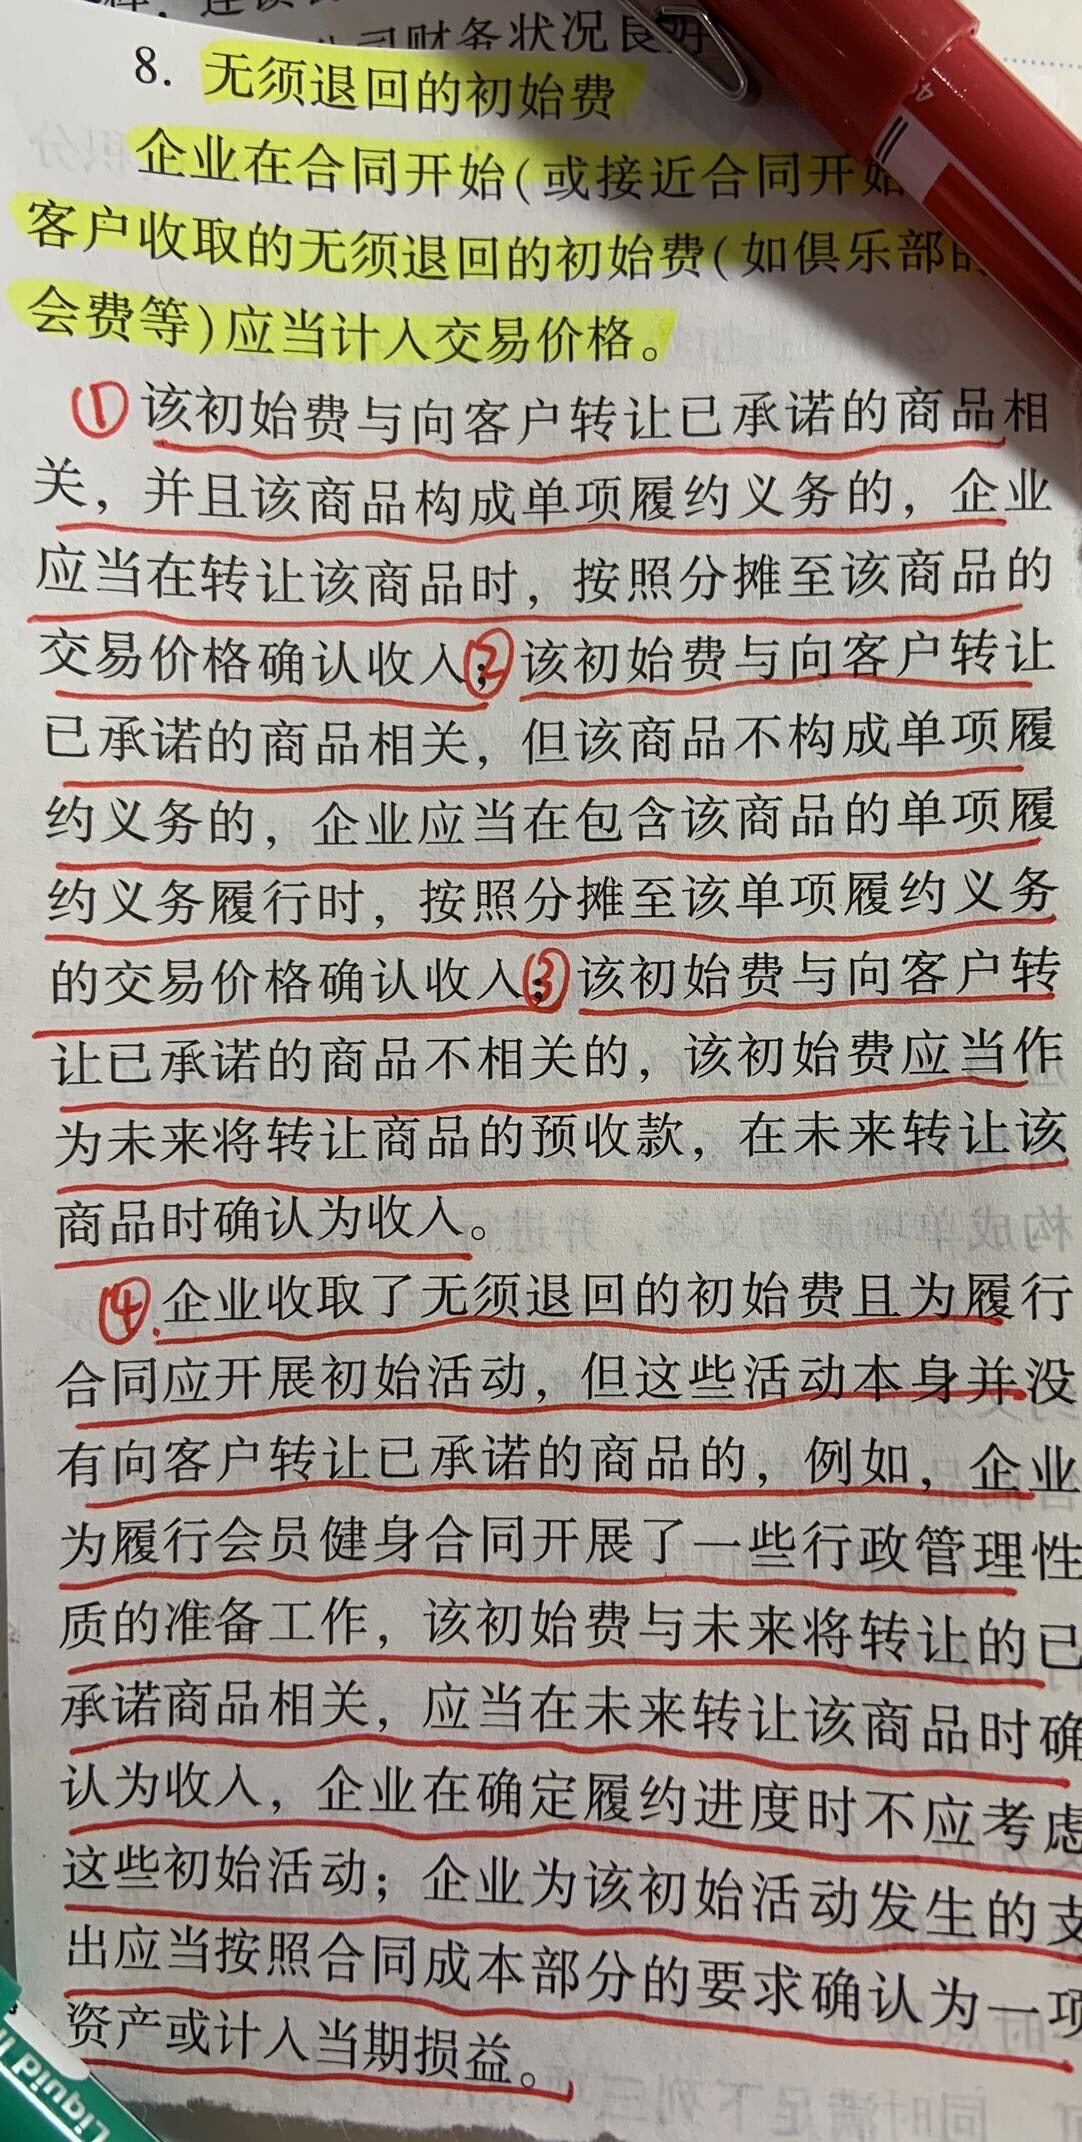 公司财务状况良好
8. 无须退回的初始费
企业在合同开始(或接近合同开始
客户收取的无须退回的初始费(如俱乐部的
会费等)应当计入交易价格。
①该初始费与向客户转让已承诺的商品相
关，并且该商品构成单项履约义务的，企业
应当在转让该商品时，按照分摊至该商品的
交易价格确认收入；②该初始费与向客户转让
已承诺的商品相关，但该商品不构成单项履
约义务的，企业应当在包含该商品的单项履
约义务履行时，按照分摊至该单项履约义务
的交易价格确认收入；③该初始费与向客户转
让已承诺的商品不相关的，该初始费应当作
为未来将转让商品的预收款，在未来转让该
商品时确认为收入。
④.企业收取了无须退回的初始费且为履行
合同应开展初始活动，但这些活动本身并没
有向客户转让已承诺的商品的，例如，企业
为履行会员健身合同开展了一些行政管理性
质的准备工作，该初始费与未来将转让的已
承诺商品相关，应当在未来转让该商品时确
认为收入，企业在确定履约进度时不应考虑
这些初始活动；企业为该初始活动发生的支
出应当按照合同成本部分的要求确认为一项
资产或计入当期损益。
Liquid